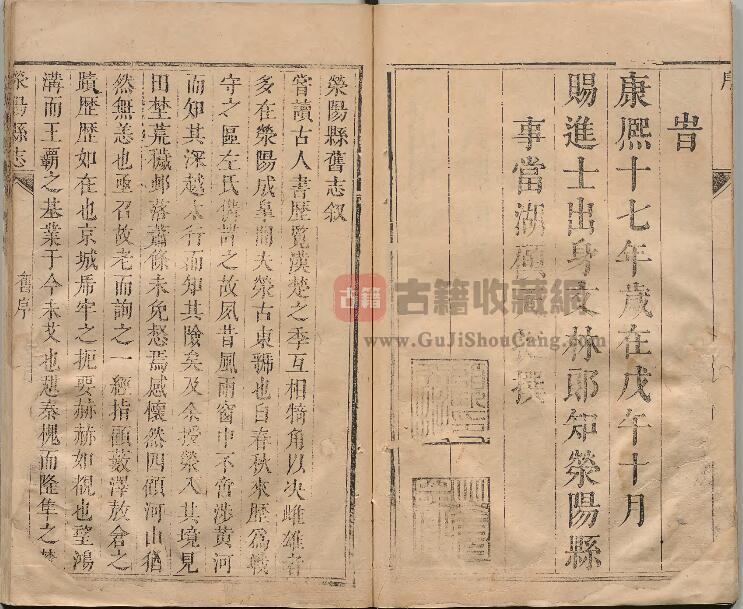 序
旹
康熈十七年歲在戊午十月
賜進士出身文林郎知滎陽縣
事當湖撰
古籍
古籍收藏網
www.GuJiShouCang.com
滎陽縣舊志叙
嘗讀古人書歴覽漢楚之季互相犄角以决雌雄者
多在滎陽成臯間夫滎古東虢也自春秋來歴爲戰
守之區左氏借箸之故夙昔風雨窗中不啻涉黄河
而知其深越太行而知其險矣及余授滎入其境見
田埜荒穢邨落蕭條未免惄焉感懷然四顧河山猶
然無恙也亟召故老而詢之一經指顧藪澤敖倉之
蹟歴歴如在也京城虎牢之扼要赫赫如覩也望鴻
溝而王覇之基業于今未艾也憩秦槐而隆隼之
滎陽縣志
舊序